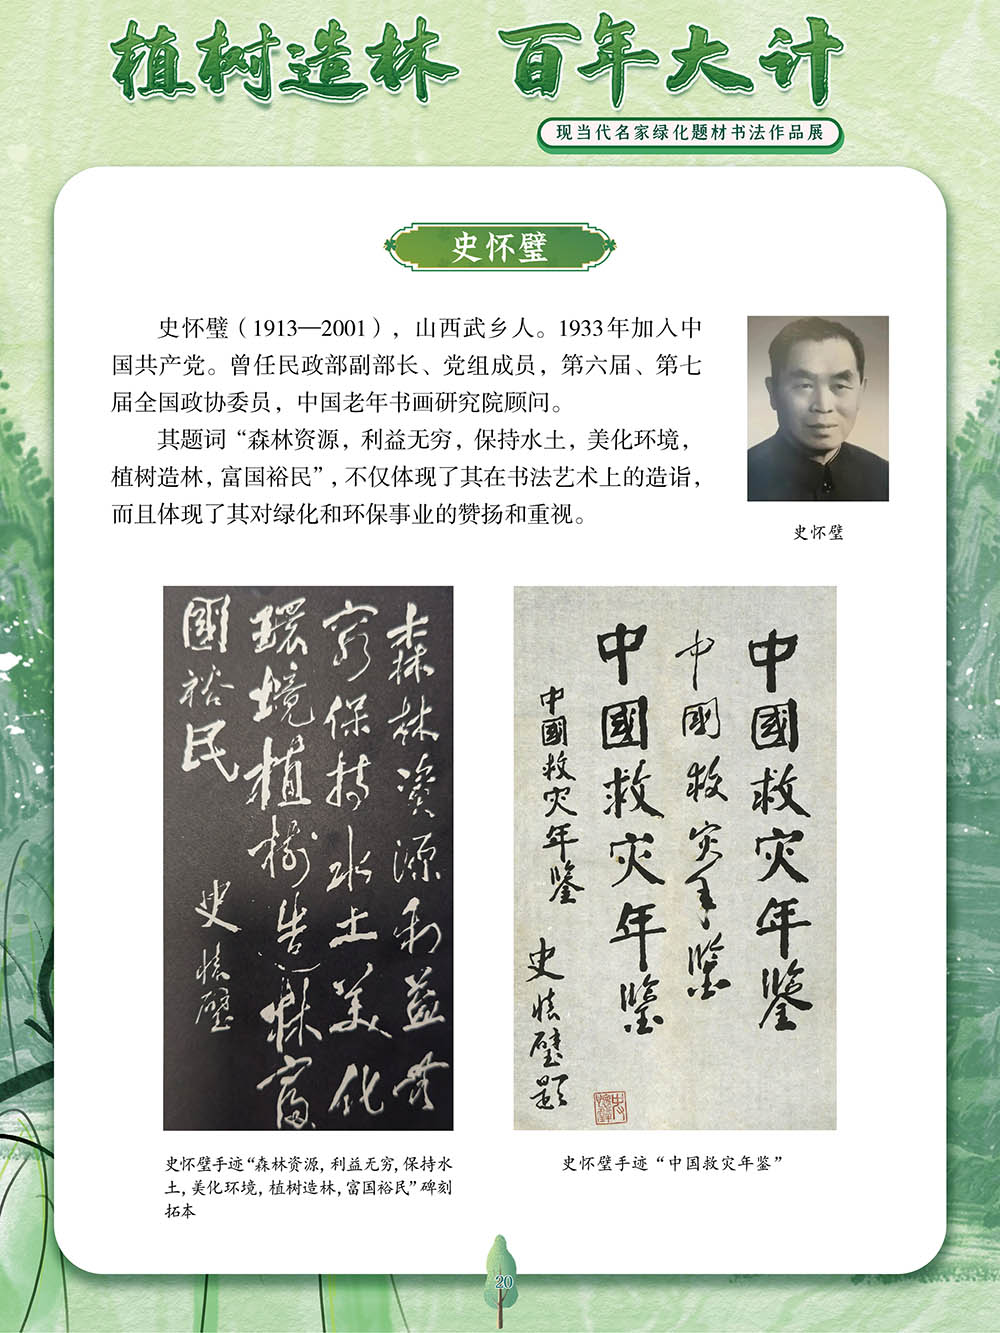 植树造林 百年大计
现当代名家绿化题材书法作品展
史怀璧
史怀璧（1913—2001），山西武乡人。1933年加入中
国共产党。曾任民政部副部长、党组成员，第六届、第七
届全国政协委员，中国老年书画研究院顾问。
其题词“森林资源，利益无穷，保持水土，美化环境，
植树造林，富国裕民”，不仅体现了其在书法艺术上的造诣，
而且体现了其对绿化和环保事业的赞扬和重视。
史怀璧
森林资源利益无
穷保持水土美化
環境植樹造林富
國裕民
史怀璧
中國救灾年鉴
中國救灾年鉴
中國救灾年鉴
中國救灾年鉴
史怀璧题
史怀璧手迹“森林资源，利益无穷，保持水
土，美化环境，植树造林，富国裕民”碑刻
拓本
史怀璧手迹“中国救灾年鉴”
20